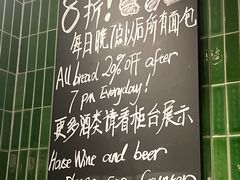 8折!
每日晚7点以后所有面包
All bread 20% off after
7 pm Everyday!
更多酒类请看柜台展示
House Wine and beer
Please see Counter